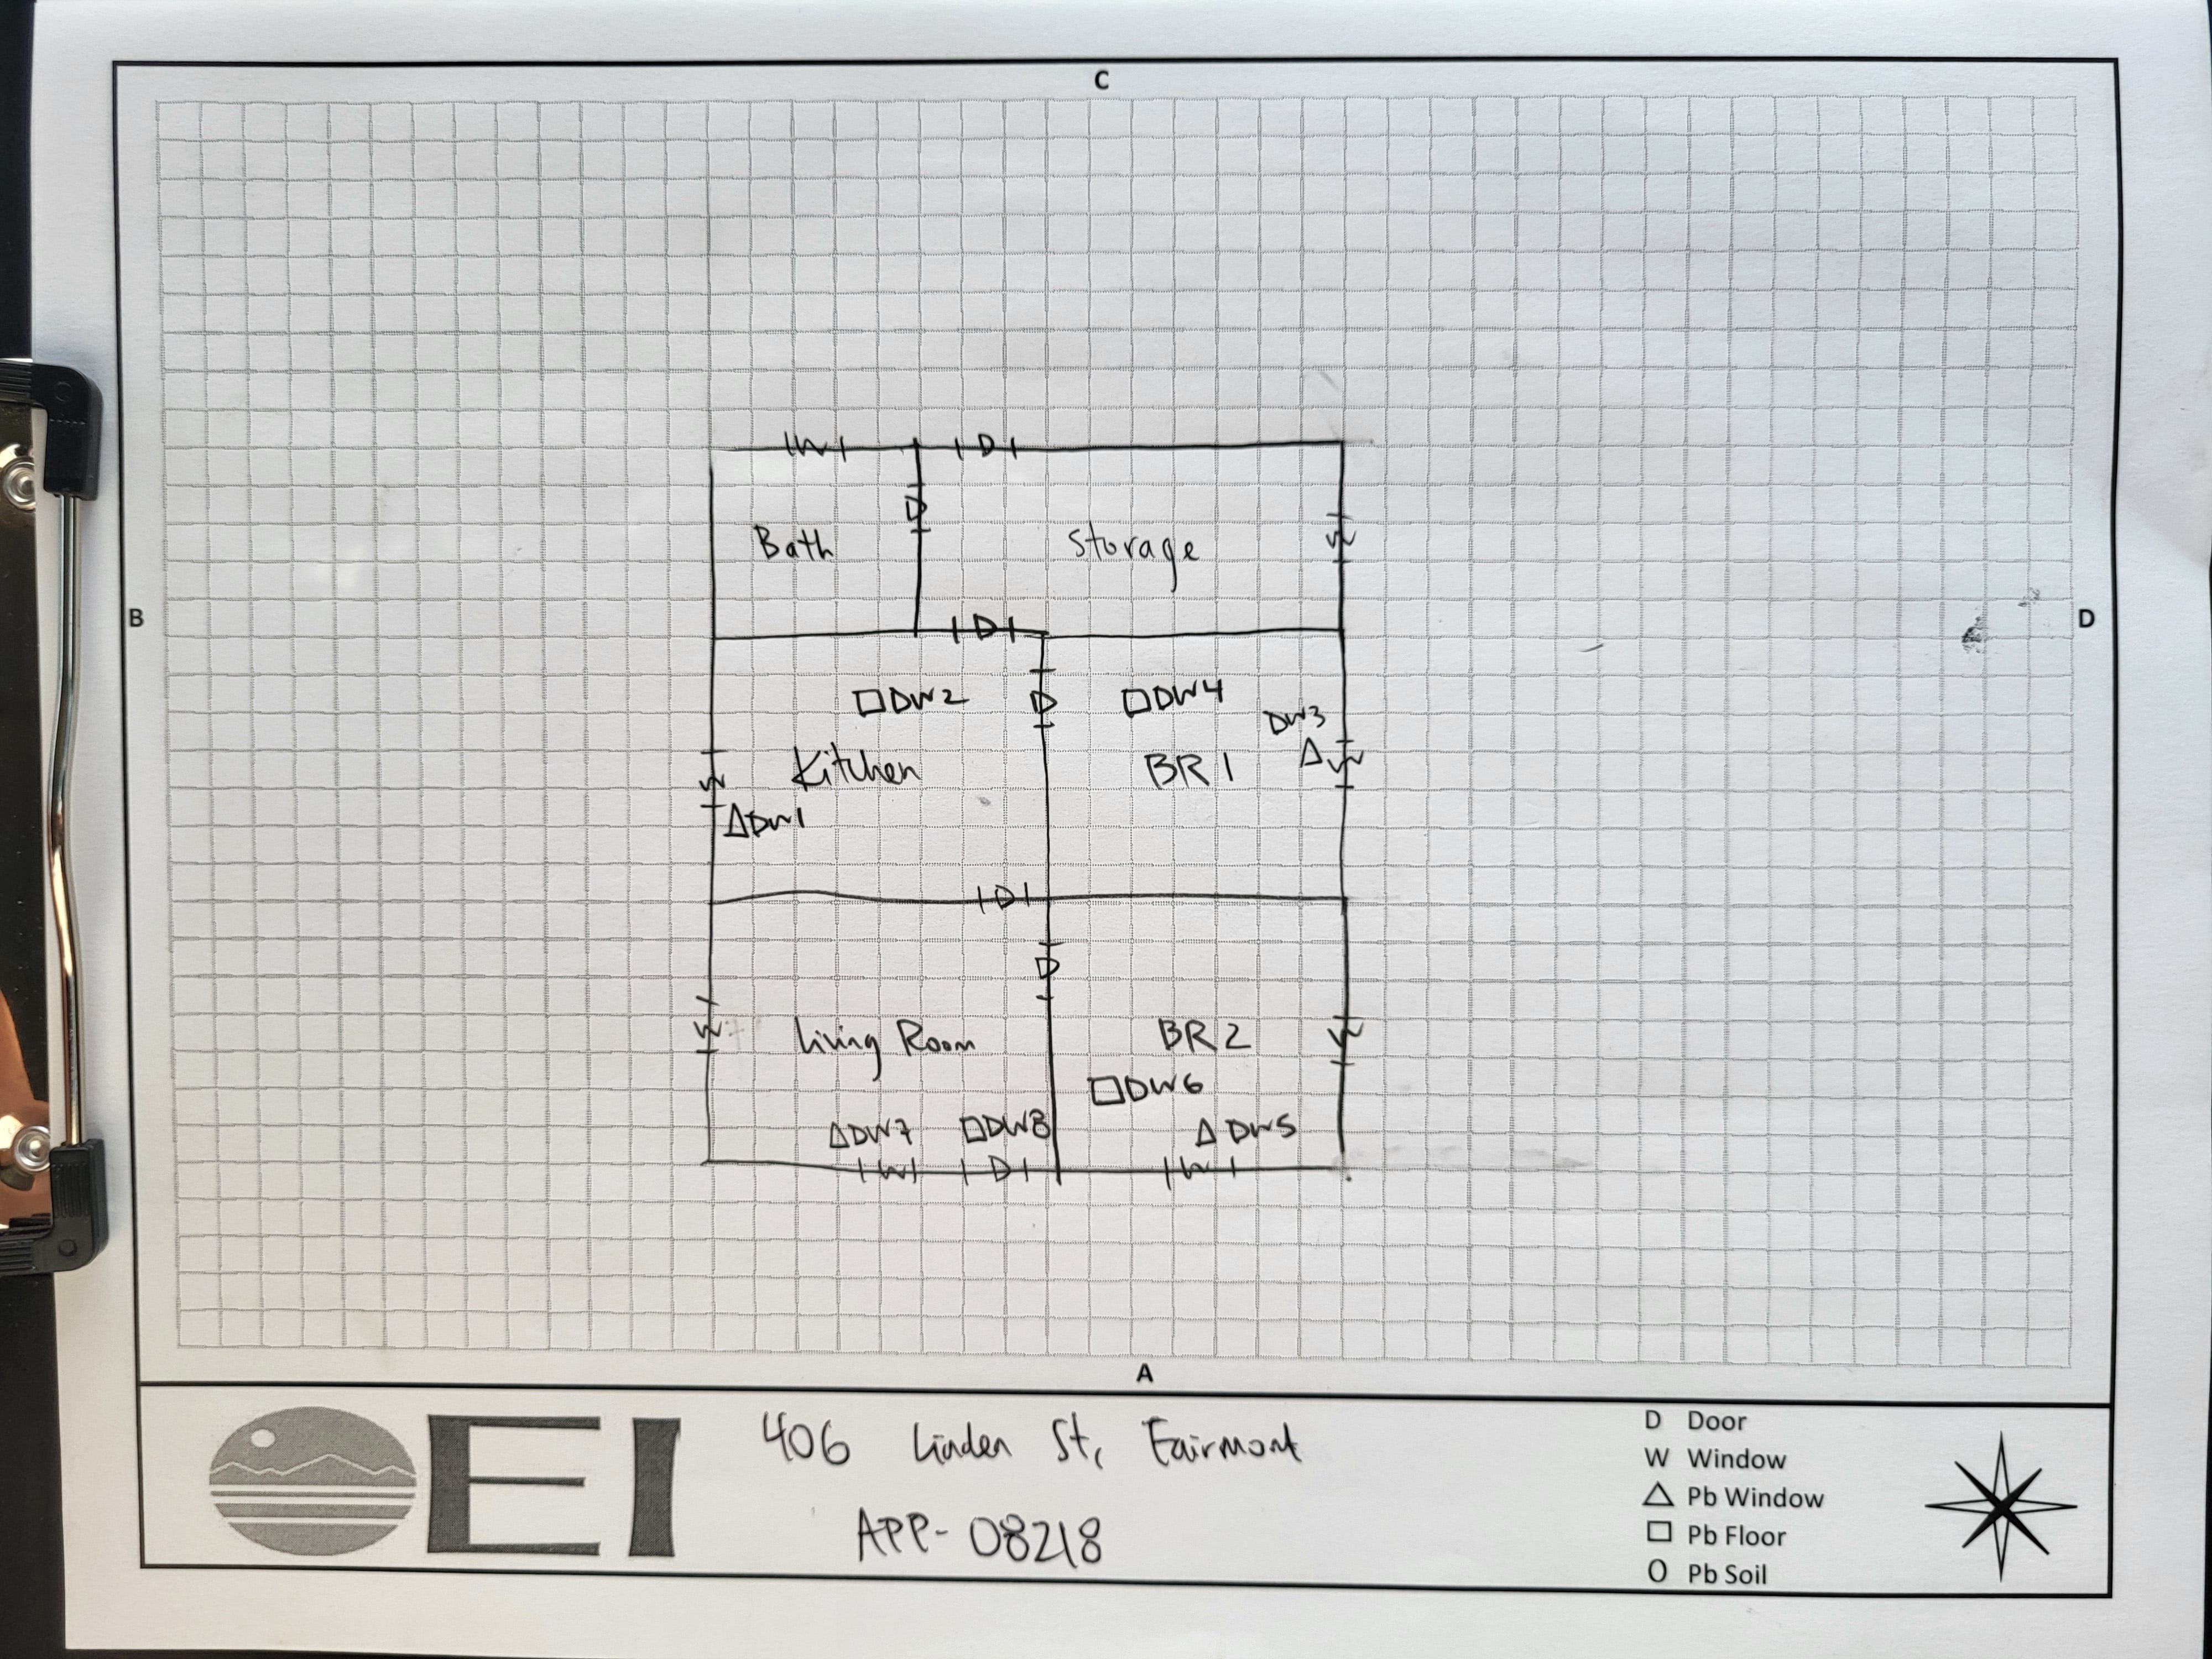 C
W D
D
Bath Storage W
B D
D
DW2 D DW4
DW3
W Kitchen BR 1 W
DW1
D
D
W Living Room BR 2 W
DW6
DW7 DW8 DW5
W D W
A
EI
406 Linden St, Fairmont
APP-08218
D Door
W Window
△ Pb Window
□ Pb Floor
O Pb Soil